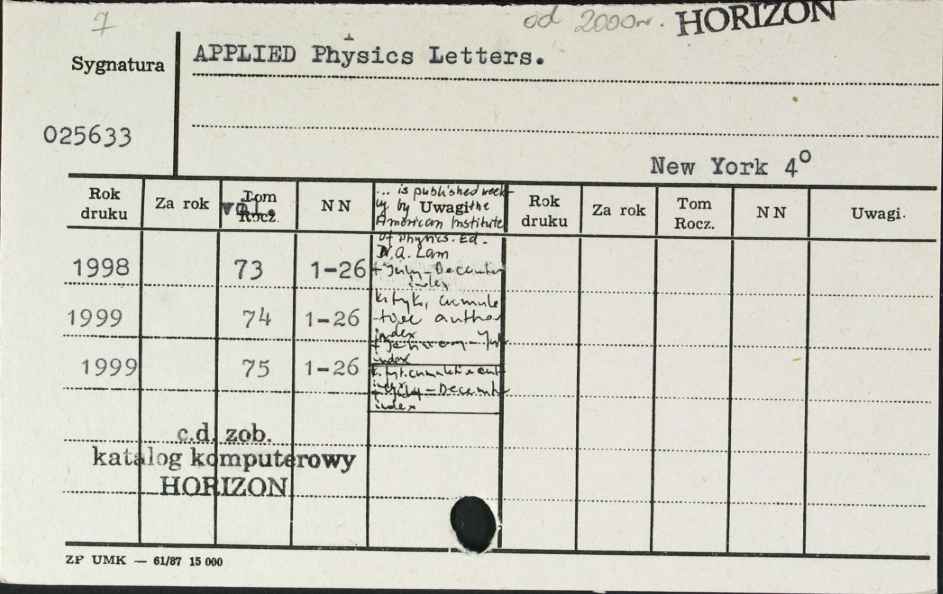 7 od 2000r. HORIZON
Sygnatura
APPLIED Physics Letters.
025633
New York 4°
Rok druku Za rok Tom Rocz. vol. NN Uwagi Rok druku Za rok Tom Rocz. NN Uwagi.
... is published week-
ly by the
American Institute
of Physics. Ed.
N.A. Lam
1998 73 1-26 + July - December
index
1999 74 1-26
cumula-
tive author
index
index
1999 75 1-26
index
+ July - December
index
c.d. zob.
katalog komputerowy
HORIZON
ZP UMK — 61/87 15 000